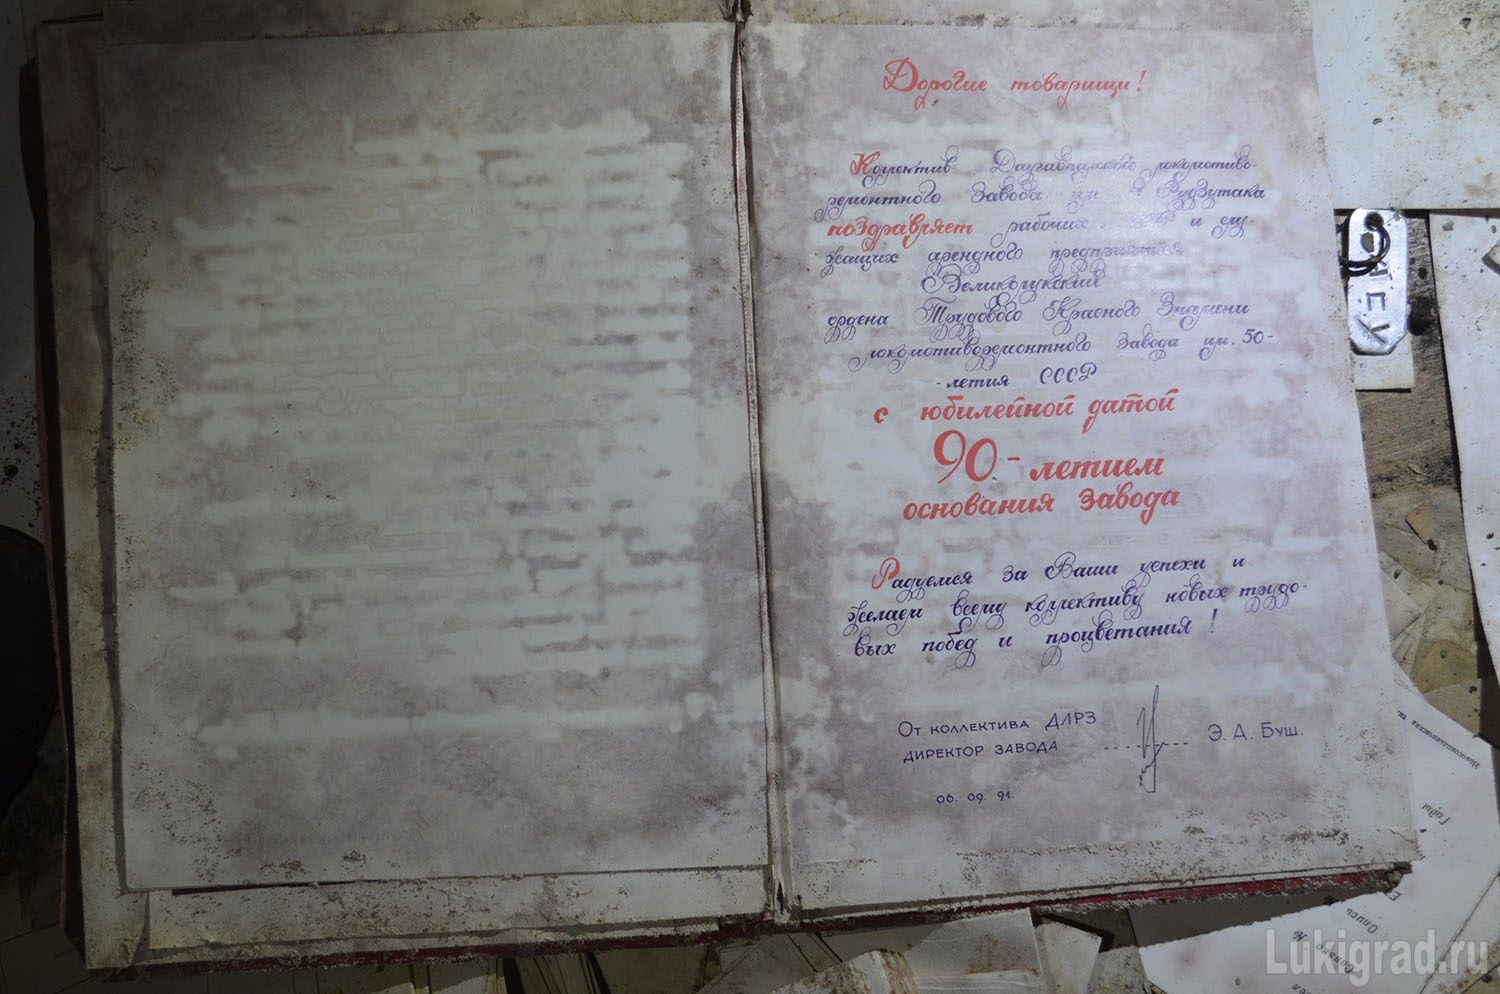 Дорогие товарищи!
Коллектив Даугавпилского локомотиво-
ремонтного завода им. Я Рудзутака
поздравляет рабочих ИТР и слу-
жащих арендного предприятия
Великолукский
ордена Трудового Красного Знамени
локомотиворемонтного завода им. 50-
-летия СССР
с юбилейной датой
90-летием
основания завода
Радуемся за Ваши успехи и
желаем всему коллективу новых трудо-
вых побед и процветания!
От коллектива ДЛРЗ
директор завода Э. А. Буш.
06. 09. 91.
Годы
Опись
Lukigrad.ru